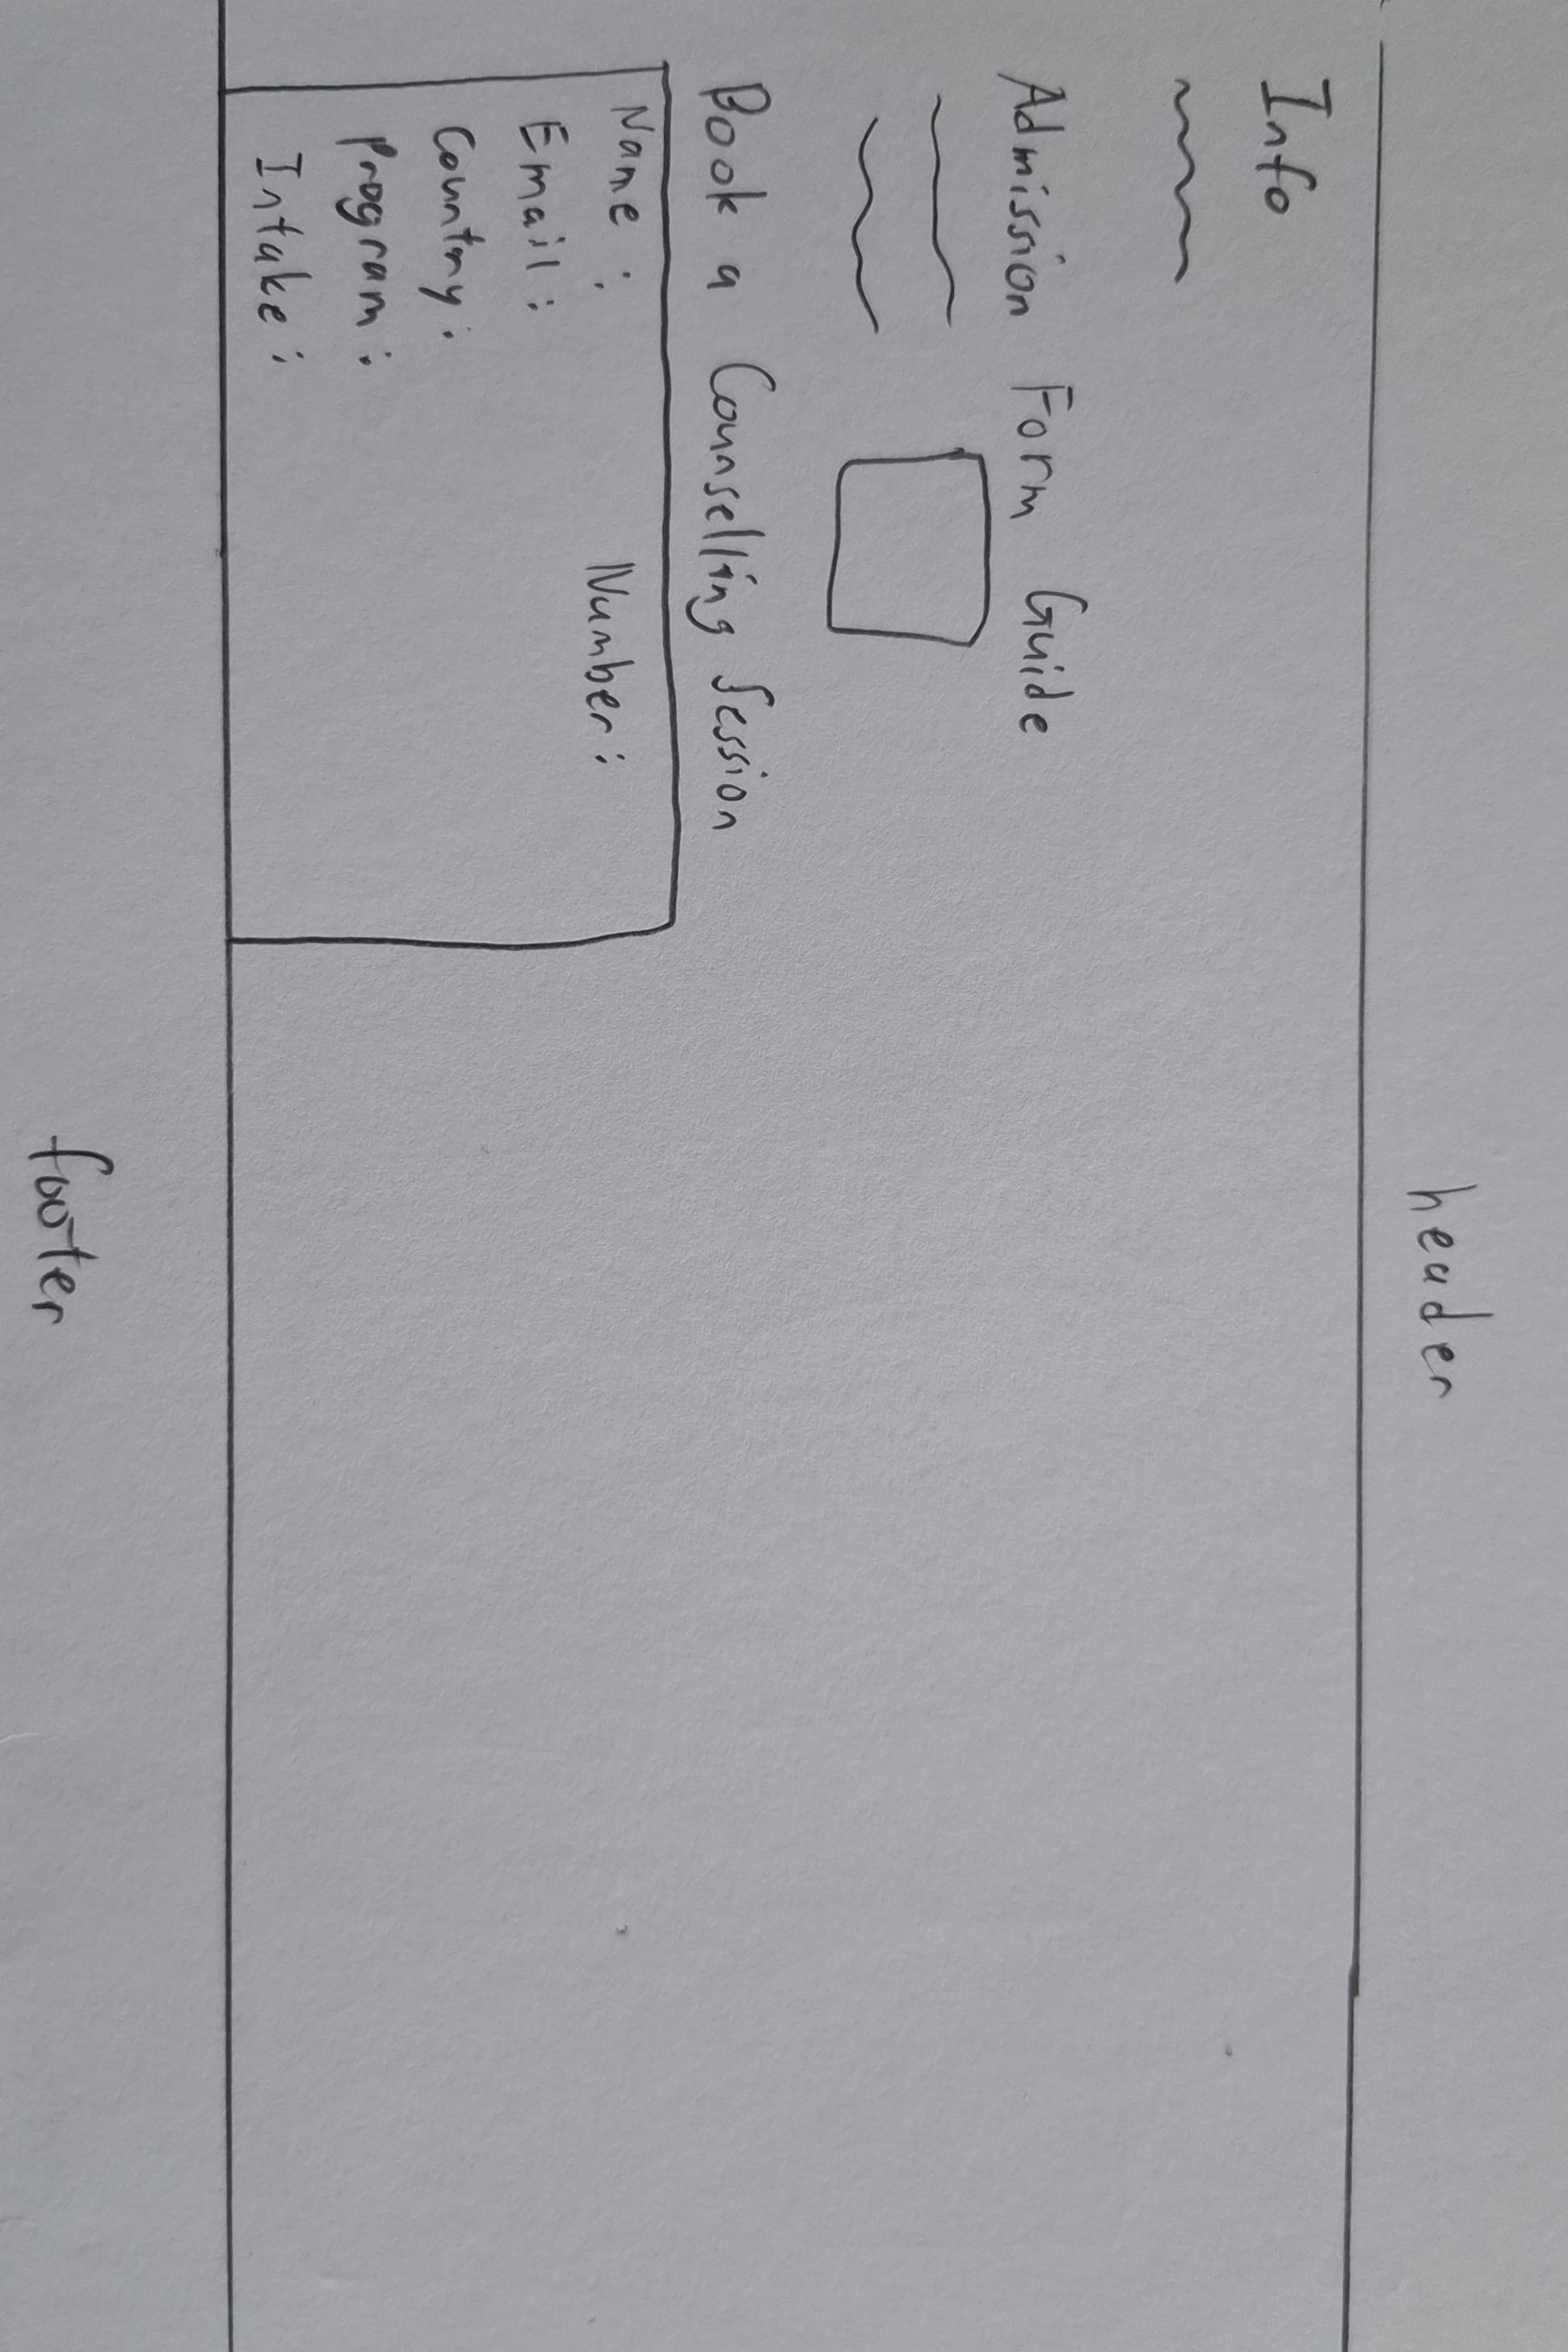 header
Info
Admission Form Guide
Book a Counselling Session
Name : Number :
Email :
Country :
Program :
Intake :
footer